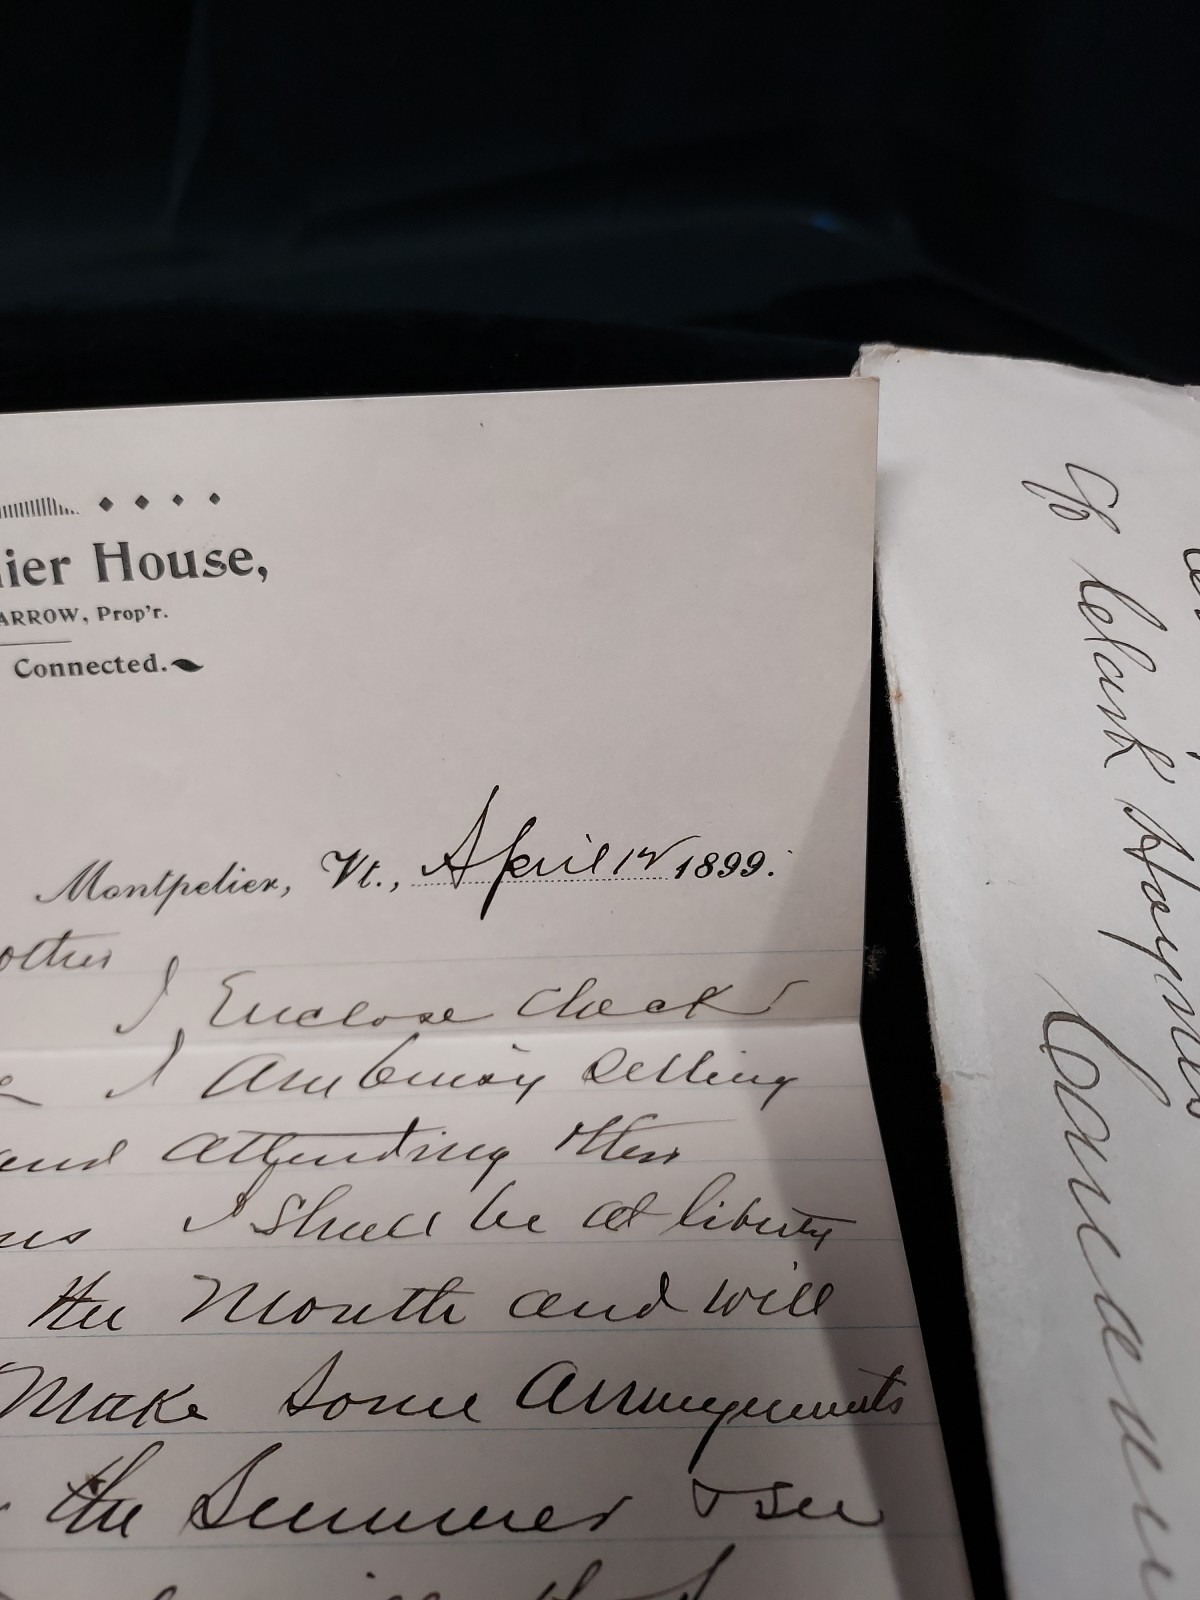 ier House,
ARROW, Prop'r.
Connected.
Montpelier, Vt., April 12 1899.
other
I Enclose Check &
I am busy Selling
and attending other
I Shall be at liberty
the Month and will
Make Some Arrangements
the Summer & see
c/o Clark Haynes
Canaan